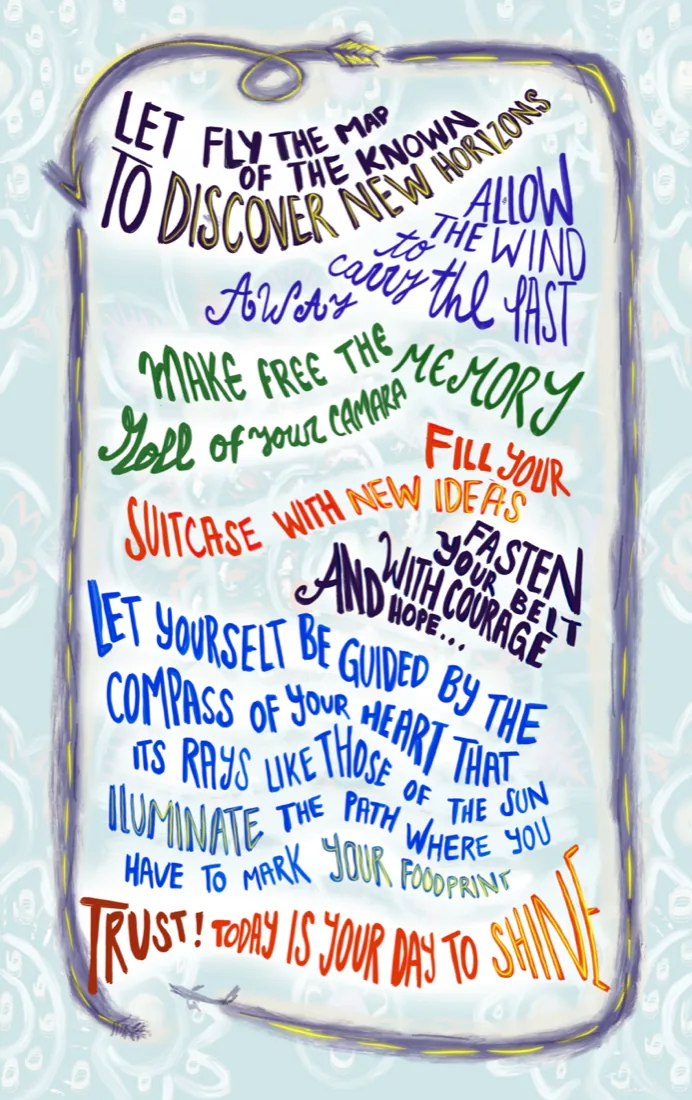 LET FLY THE MAP
OF THE KNOWN
TO DISCOVER NEW HORIZONS
ALLOW
THE WIND
to carry the PAST
AWAY
MAKE FREE THE MEMORY
Roll of your CAMARA
FILL YOUR
SUITCASE WITH NEW IDEAS
FASTEN
YOUR BELT
WITH COURAGE
AND HOPE...
LET YOURSELT BE GUIDED BY THE
COMPASS OF YOUR HEART THAT
ITS RAYS LIKE THOSE OF THE SUN
ILUMINATE THE PATH WHERE YOU
HAVE TO MARK YOUR FOODPRINT
TRUST! TODAY IS YOUR DAY TO SHINE